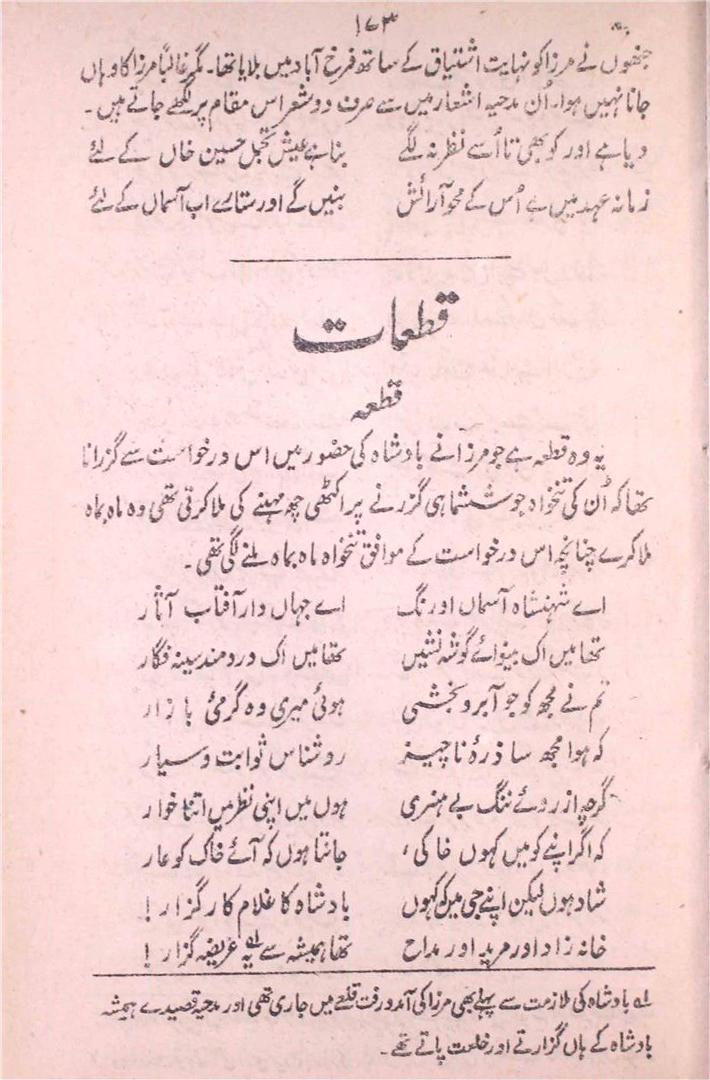 ۱۷۳
جنھوں نے مرزا کو نہایت اشتیاق کے ساتھ فرخ آباد میں بلایا تھا۔ مگر غالباً مرزا کا وہاں
جانا نہیں ہوا۔ اُن مدحیہ اشعار میں سے صرف دو شعر اس مقام پر لکھے جاتے ہیں۔
دیا ہے اور کو بھی تا اُسے نظر نہ لگے بنا ہے عیش تجمل حسین خاں کے لئے
زمانہ عہد میں ہے اُس کے محو آرائش بنیں گے اور ستارے اب آسماں کے لئے
قطعات
قطعہ
یہ وہ قطعہ ہے جو مرزا نے بادشاہ کی حضور میں اس درخواست سے گزرانا
تھا کہ اُن کی تنخواہ جو ششماہی گزرنے پر اکٹھی چھ مہینے کی ملا کرتی تھی وہ ماہ بماہ
ملا کرے چنانچہ اس درخواست کے موافق تنخواہ ماہ بماہ ملنے لگی تھی۔
اے شہنشاہ آسماں اورنگ اے جہاں دار آفتاب آثار
تھا میں اک بینوائے گوشہ نشیں تھا میں اک دردمند سینہ فگار
تم نے مجھ کو جو آبرو بخشی ہوئی میری وہ گرمیٔ بازار
کہ ہوا مجھ سا ذرۂ ناچیز روشناس ثوابت و سیار
گرچہ از روئے ننگ بے ہنری ہوں میں اپنی نظر میں اتنا خوار
کہ اگر اپنے کو میں کہوں خاکی، جانتا ہوں کہ آئے خاک کو عار
شاد ہوں لیکن اپنے جی میں کہ ہوں بادشاہ کا غلام کارگزار!
خانہ زاد اور مرید اور مداح تھا ہمیشہ سے یہ لہ عریضہ گزار!
لہ بادشاہ کی ملازمت سے پہلے بھی مرزا کی آمد و رفت قلعے میں جاری تھی اور مدحیہ قصیدے ہمیشہ
بادشاہ کے ہاں گزارتے اور خلعت پاتے تھے۔